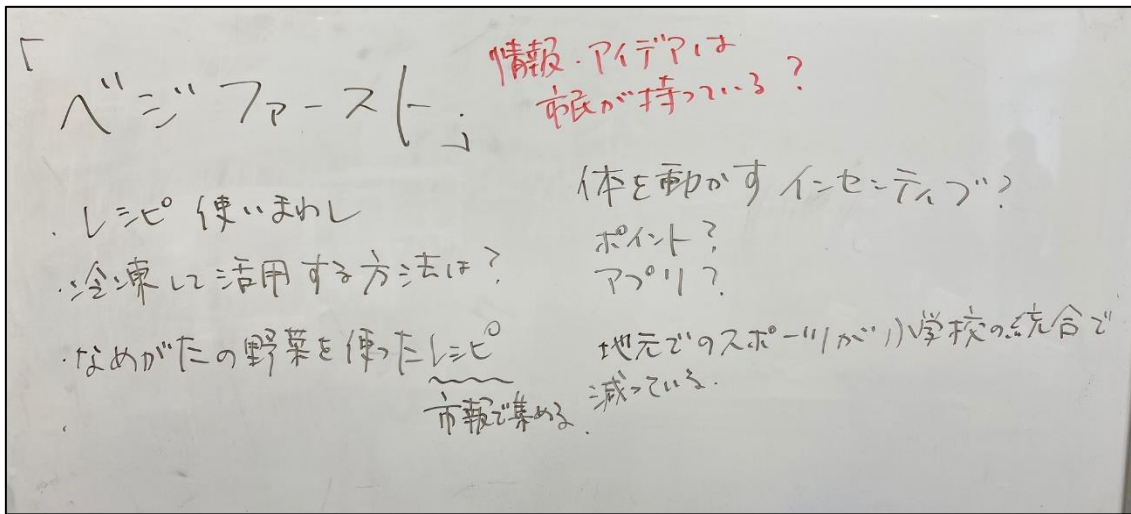 「ベジファースト」
情報・アイデアは
市民が持っている?
・レシピ 使いまわし
・冷凍して活用する方法は?
・なめがたの野菜を使ったレシピ
市報で集める
体を動かす インセンティブ?
ポイント?
アプリ?
地元でのスポーツが小学校の統合で
減っている.